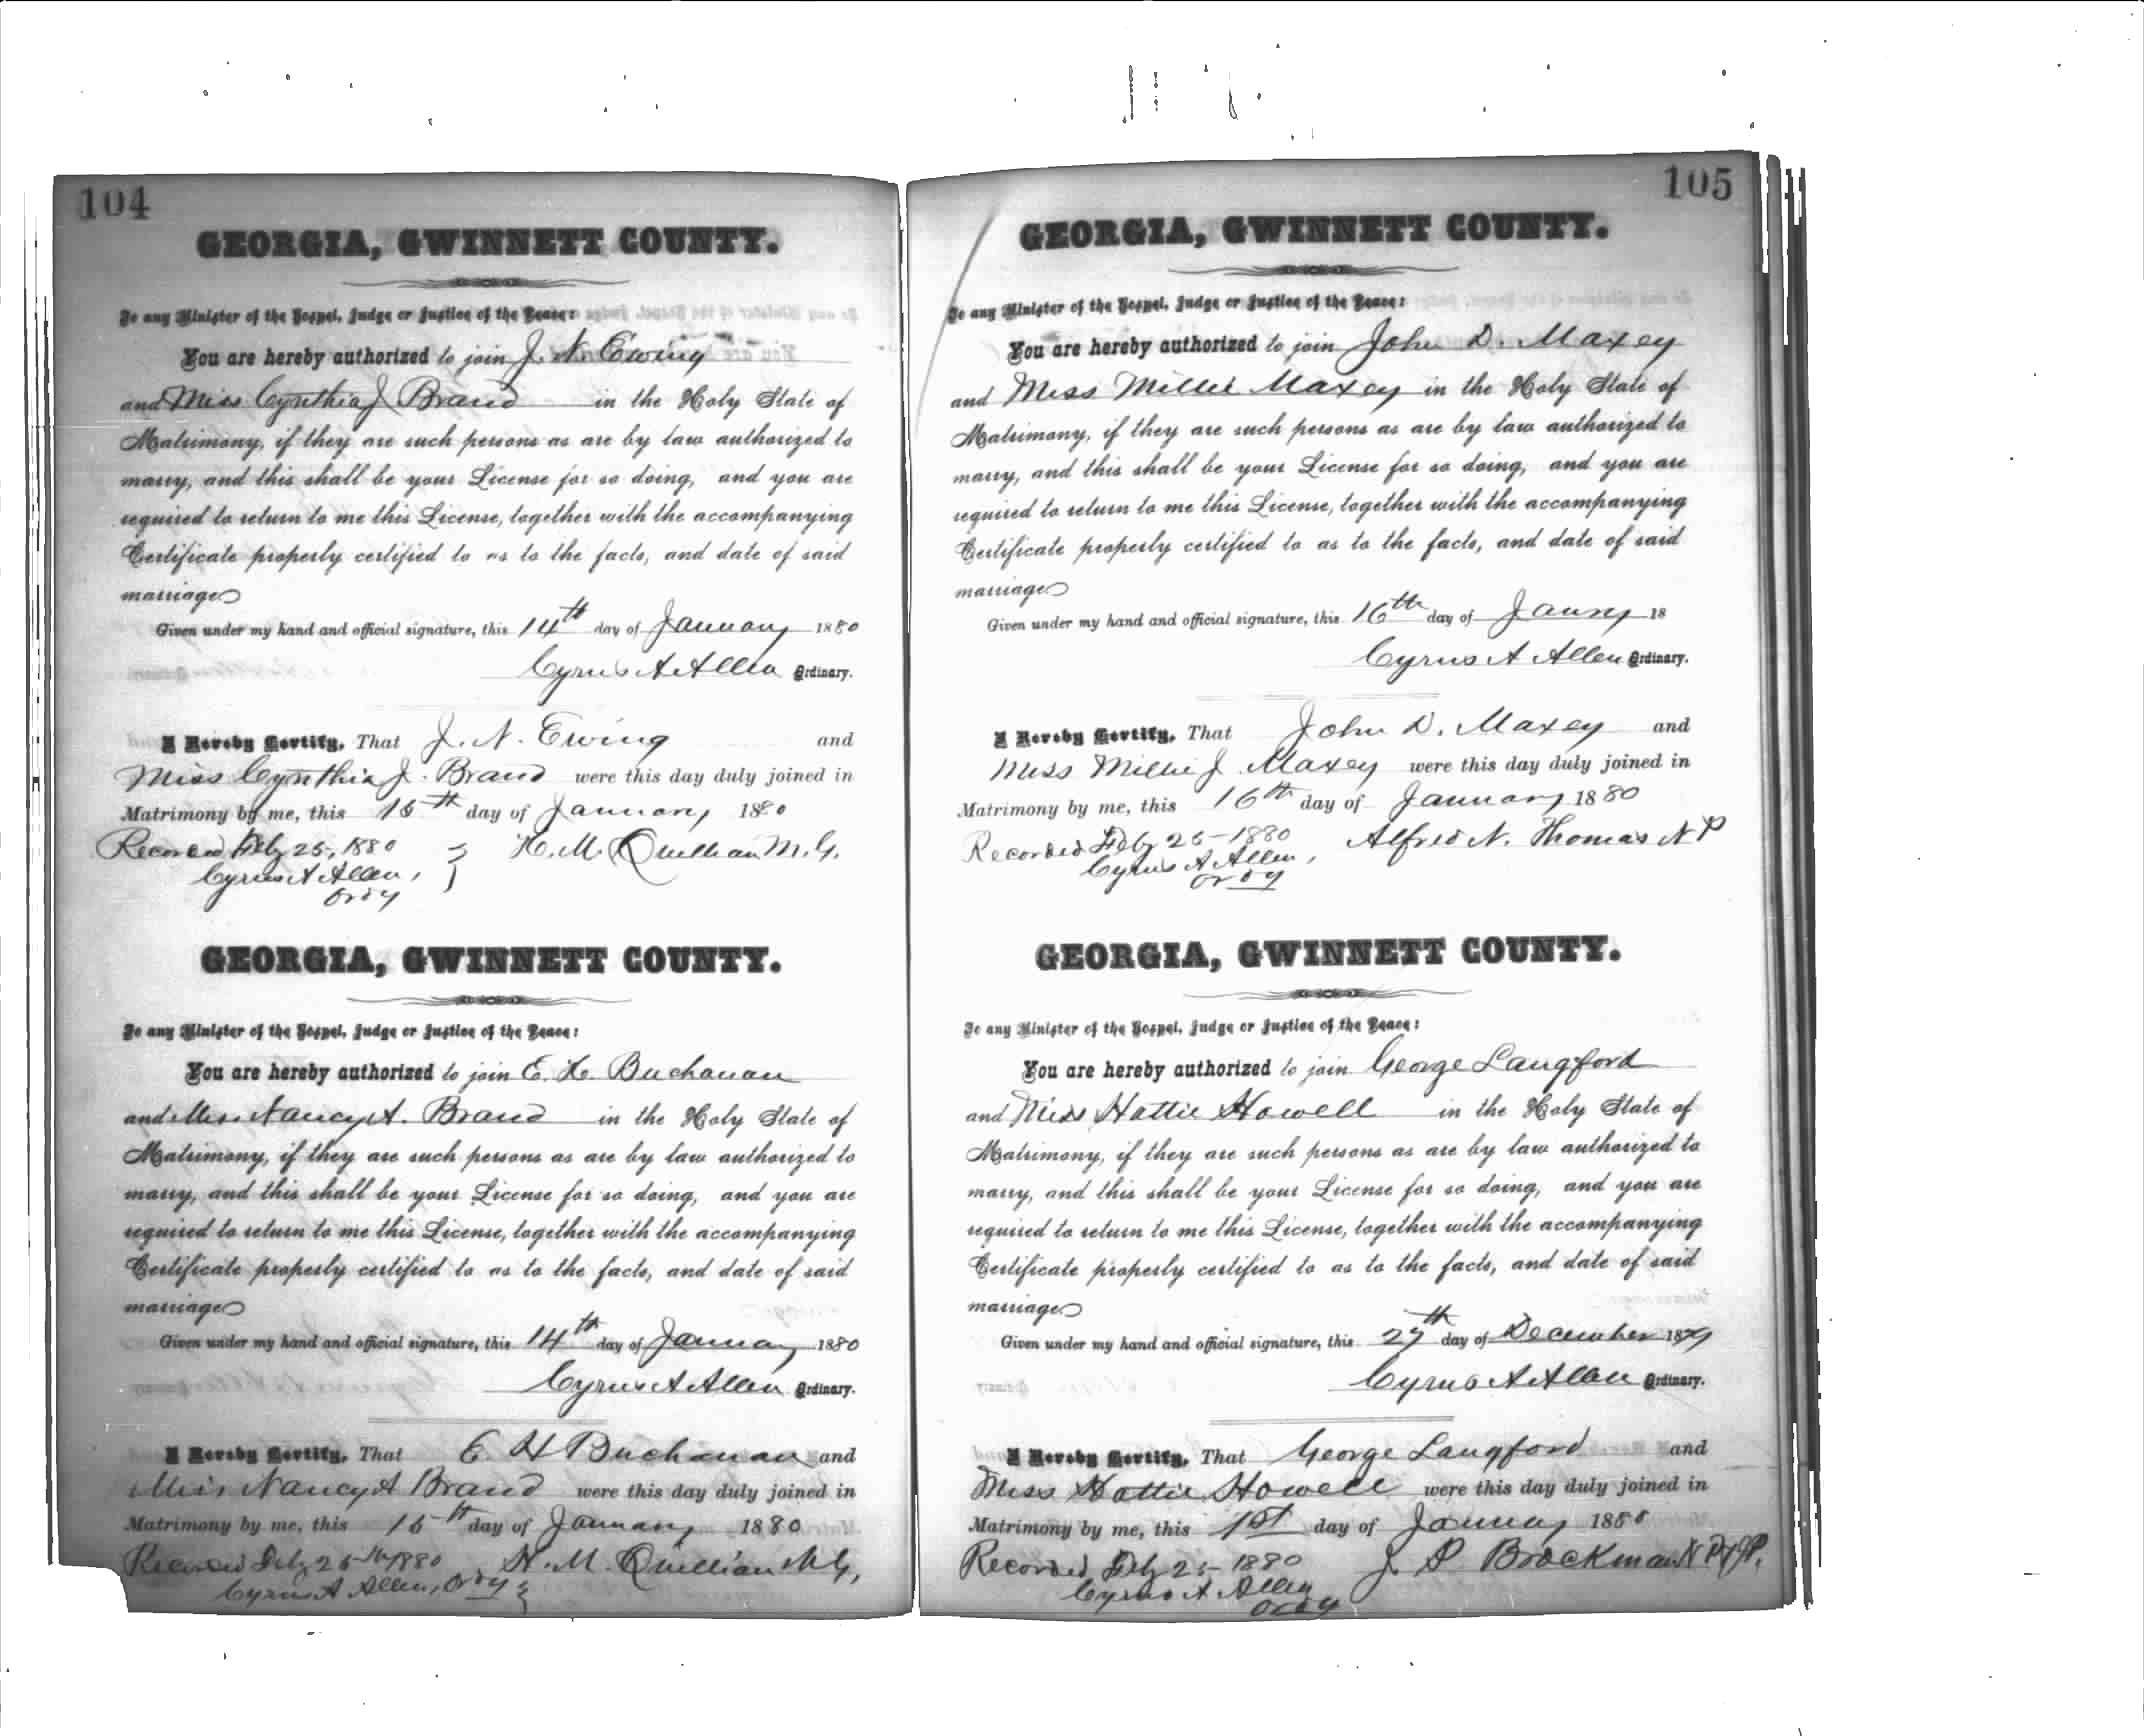 104
GEORGIA, GWINNETT COUNTY.
To any Minister of the Gospel, Judge or Justice of the Peace:
You are hereby authorized to join J. N. Ewing
and Miss Cynthia J Brand in the Holy State of
Matrimony, if they are such persons as are by law authorized to
marry, and this shall be your License for so doing, and you are
required to return to me this License, together with the accompanying
Certificate properly certified to as to the facts, and date of said
marriage
Given under my hand and official signature, this 14th day of January 1880
Cyrus A Allen Ordinary.
I Hereby Certify, That J. N. Ewing and
Miss Cynthia J. Brand were this day duly joined in
Matrimony by me, this 15th day of January 1880
Recorded Feby 25, 1880 H. M. Quillian M.G.
Cyrus A Allen,
Ordy
GEORGIA, GWINNETT COUNTY.
To any Minister of the Gospel, Judge or Justice of the Peace:
You are hereby authorized to join E. H. Buchanan
and Miss Nancy A. Brand in the Holy State of
Matrimony, if they are such persons as are by law authorized to
marry, and this shall be your License for so doing, and you are
required to return to me this License, together with the accompanying
Certificate properly certified to as to the facts, and date of said
marriage
Given under my hand and official signature, this 14th day of January 1880
Cyrus A Allen Ordinary.
I Hereby Certify, That E. H Buchanan and
Miss Nancy A Brand were this day duly joined in
Matrimony by me, this 15th day of January 1880
Recorded Feby 25th 1880 H. M. Quillian M.G.
Cyrus A Allen, Ordy
105
GEORGIA, GWINNETT COUNTY.
To any Minister of the Gospel, Judge or Justice of the Peace:
You are hereby authorized to join John D. Maxey
and Miss Millie Maxey in the Holy State of
Matrimony, if they are such persons as are by law authorized to
marry, and this shall be your License for so doing, and you are
required to return to me this License, together with the accompanying
Certificate properly certified to as to the facts, and date of said
marriage
Given under my hand and official signature, this 16th day of Janry 18
Cyrus A Allen Ordinary.
I Hereby Certify, That John D. Maxey and
Miss Millie J. Maxey were this day duly joined in
Matrimony by me, this 16th day of January 1880
Recorded Feby 25 1880 Alfred N. Thomas N P
Cyrus A Allen,
Ordy
GEORGIA, GWINNETT COUNTY.
To any Minister of the Gospel, Judge or Justice of the Peace:
You are hereby authorized to join George Langford
and Miss Hattie Howell in the Holy State of
Matrimony, if they are such persons as are by law authorized to
marry, and this shall be your License for so doing, and you are
required to return to me this License, together with the accompanying
Certificate properly certified to as to the facts, and date of said
marriage
Given under my hand and official signature, this 27th day of December 1879
Cyrus A Allen Ordinary.
I Hereby Certify, That George Langford and
Miss Hattie Howell were this day duly joined in
Matrimony by me, this 1st day of January 1880
Recorded Feby 25 1880 J. P. Brockman
Cyrus A. Allen
Ordy